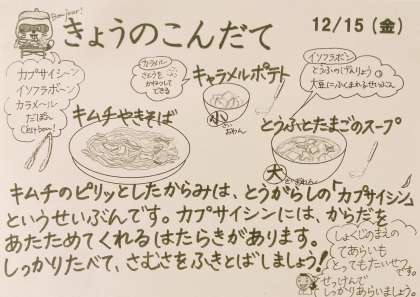 Bonjour!
きょうのこんだて
12/15(金)
カプサイシーン
イソフラボーン
カラメール
だぽーん
C'est bon!
カラメル
さとうを
かねつして
できる
キャラメルポテト
小
おわん
イソフラボン
とうふのげんりょう
大豆にふくまれるせいぶん
キムチやきそば
とうふとたまごのスープ
大
おわん
キムチのピリッとしたからみは、とうがらしの「カプサイシン」
というせいぶんです。カプサイシンには、からだを
あたためてくれるはたらきがあります。
しっかりたべて、さむさをふきとばしましょう!
しょくじのまえの
てあらいも
とってもたいせつ
です。
せっけんで
しっかりあらいましょう。